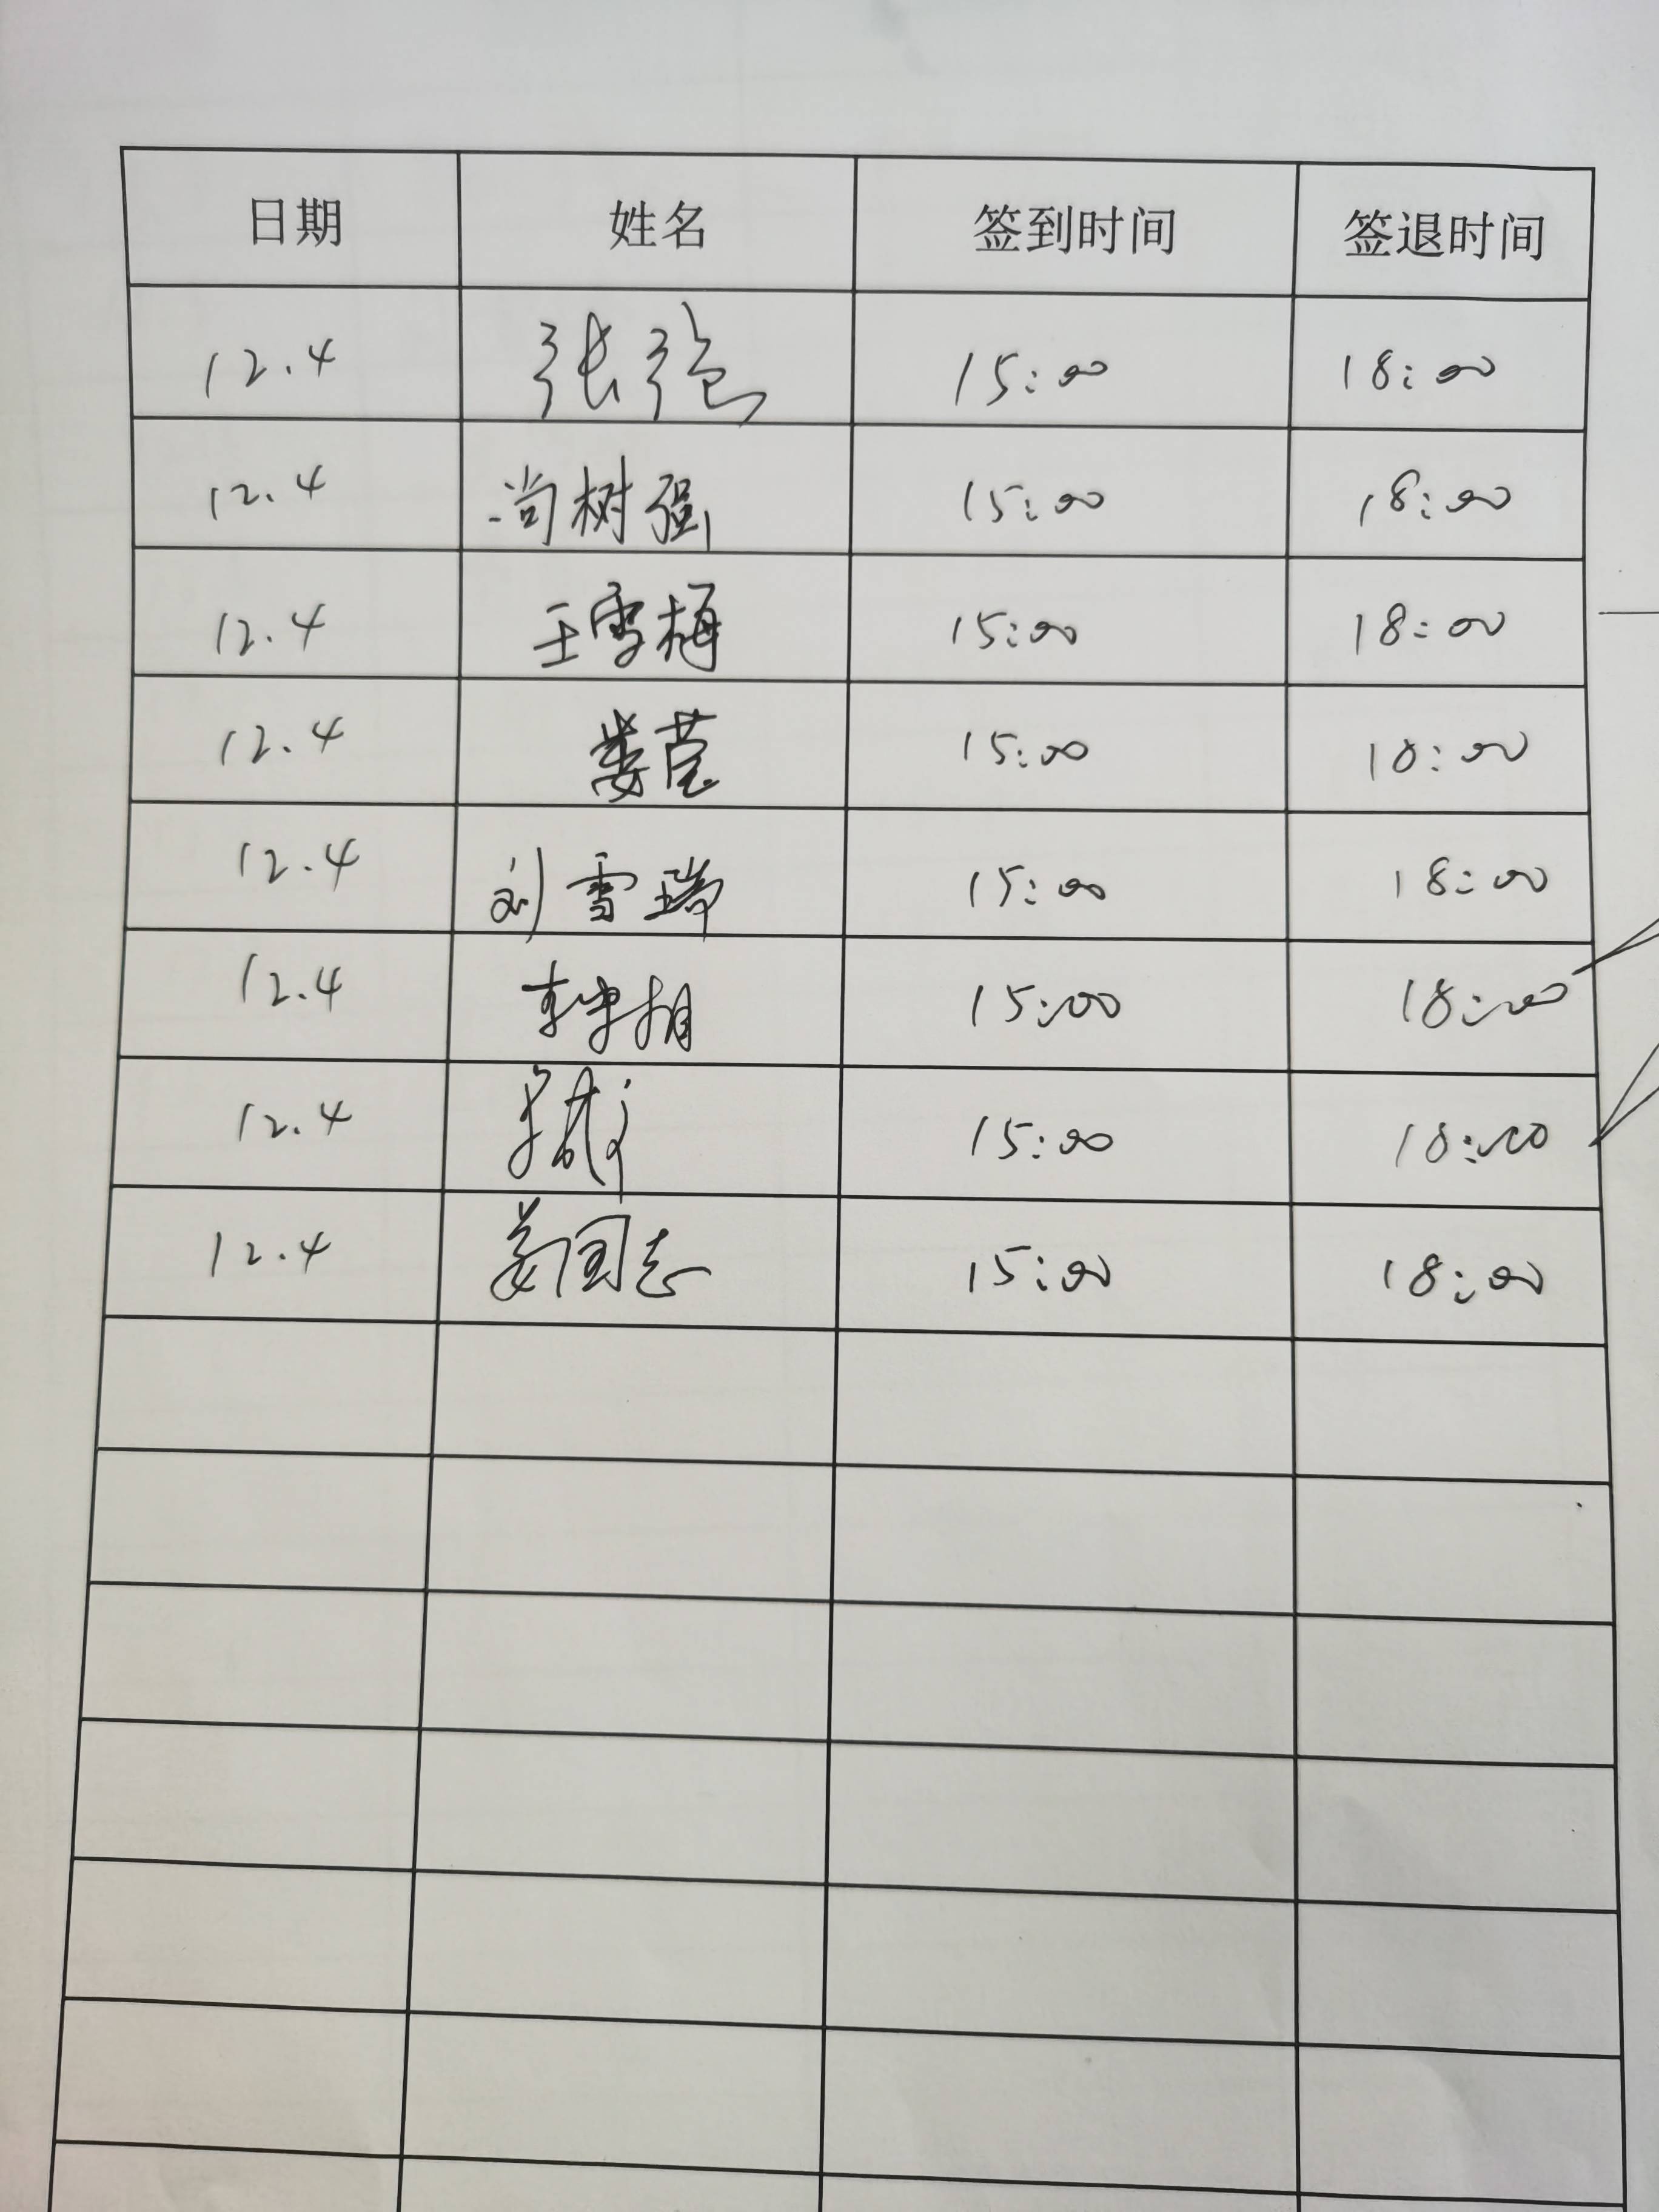 日期 姓名 签到时间 签退时间
12.4 张强 15:00 18:00
12.4 尚树强 15:00 18:00
12.4 王雪梅 15:00 18:00
12.4 娄莹 15:00 18:00
12.4 刘雪瑞 15:00 18:00
12.4 15:00 18:00
12.4 15:00 18:00
12.4 姜国志 15:00 18:00